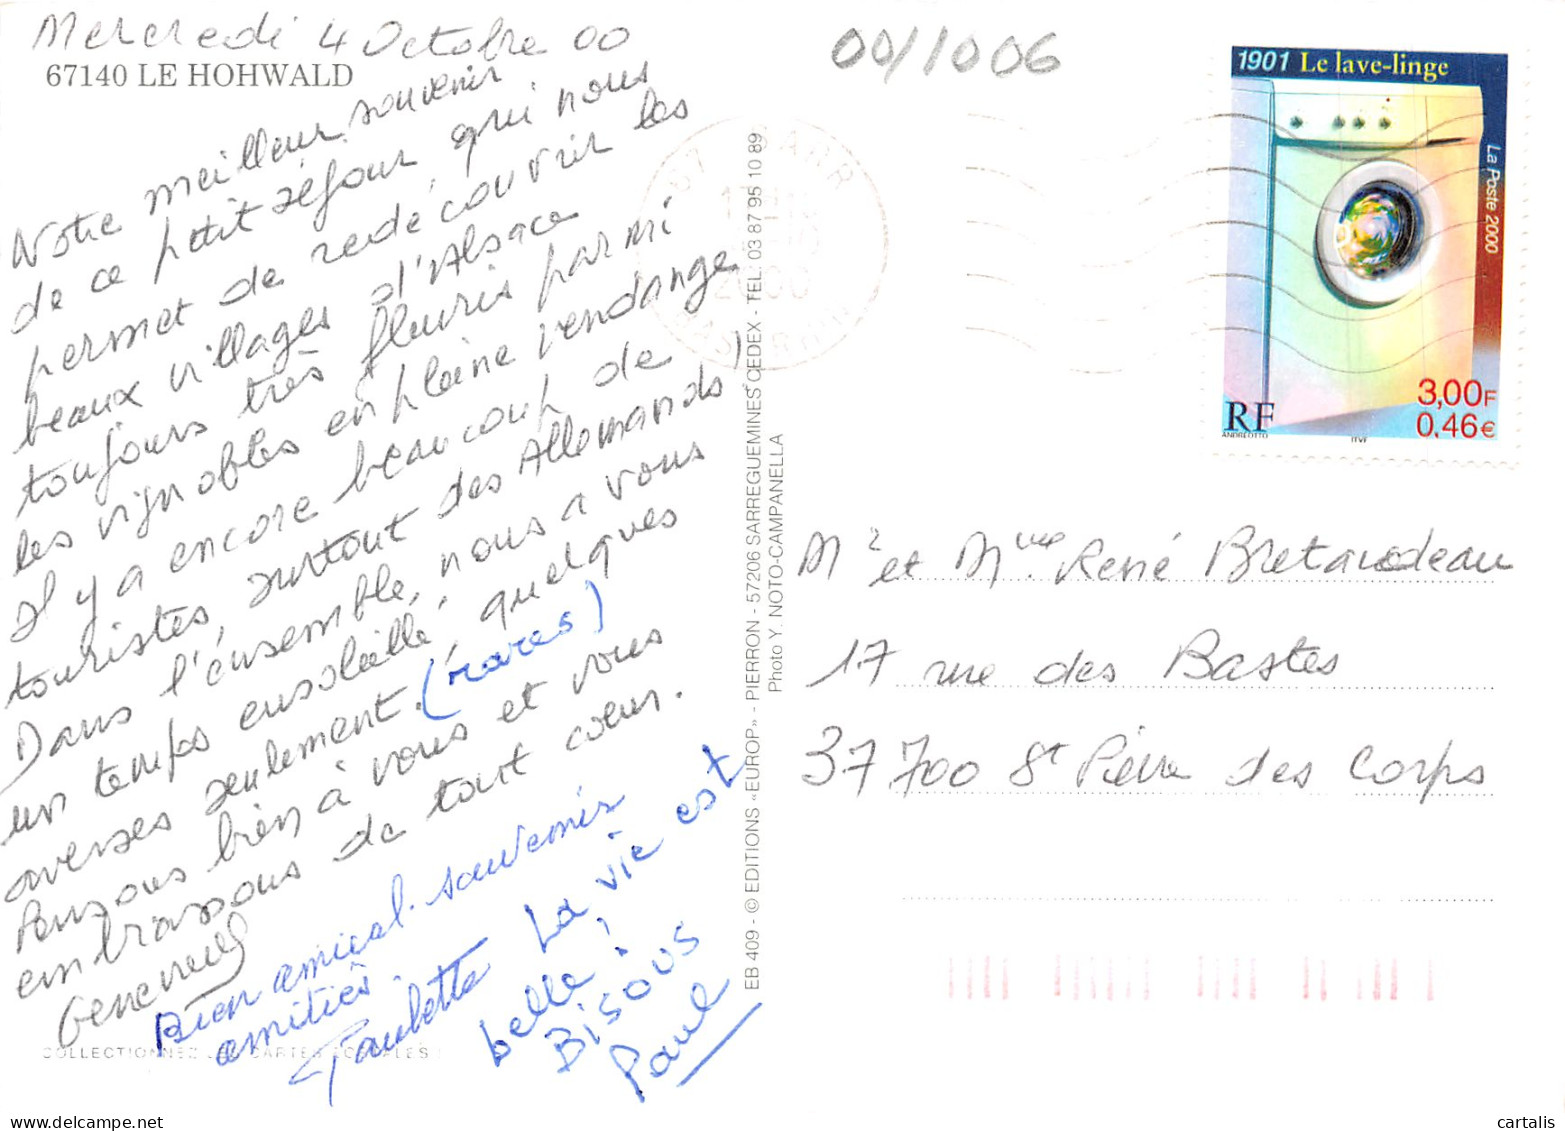 Mercredi 4 Octobre 00
67140 LE HOHWALD
Notre meilleur souvenir
de ce petit séjour, qui nous
permet de redécouvrir les
beaux villages d'Alsace
toujours très fleuris parmi
les vignobles en pleine vendange
Il y a encore beaucoup de
touristes, surtout des Allemands !
Dans l'ensemble, nous avons
un temps ensoleillé, quelques
averses seulement. (rares)
Pensons bien à vous et vous
embrassons de tout coeur.
Bien amical souvenir
amitiés.
Paulette
La vie est
belle !
Bisous
Paul
COLLECTIONNEZ LES CARTES LOCALES !
EB 409 - © EDITIONS «EUROP» - PIERRON - 57206 SARREGUEMINES CEDEX - TEL. 03 87 95 10 89
Photo Y. NOTO-CAMPANELLA
00/1006
67 BARR
2000
BAS RHIN
1901 Le lave-linge
La Poste 2000
3,00F
0,46€
RF
ANDREOTTO
ITVF
Mr et Mme René Bretaudeau
17 rue des Bastes
37700 St Pierre des Corps
cartalis
www.delcampe.net